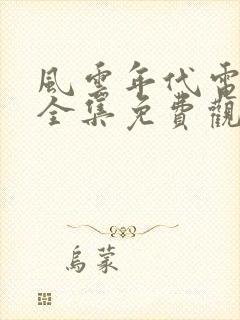 風雲年代電
全集免費觀
烏蒙